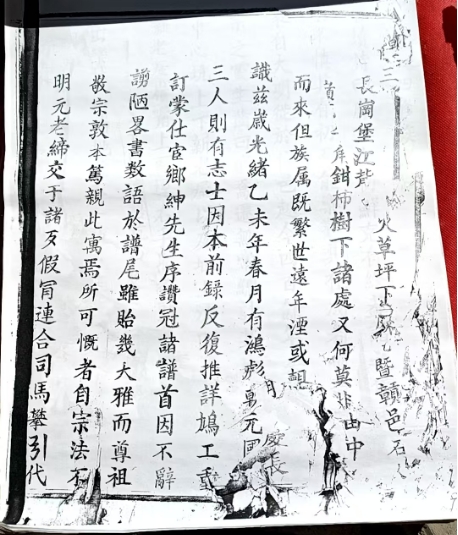 三
長崗堡江背 火草坪下 暨贛邑石
角鉗柿樹下諸處又何莫非由中
而來但族属既繁世遠年湮或
識兹歲光緒乙未年春月有鴻彪 元
三人則有志士因本前録反復推詳鳩工重
訂蒙仕宦鄉紳先生序讚冠諸譜首因不辭
謭陋畧書数語於譜尾雖貽譏大雅而尊祖
敬宗敦本篤親此寓焉所可慨者自宗法不
明元老締交于諸歹假冐連合司馬攀引代